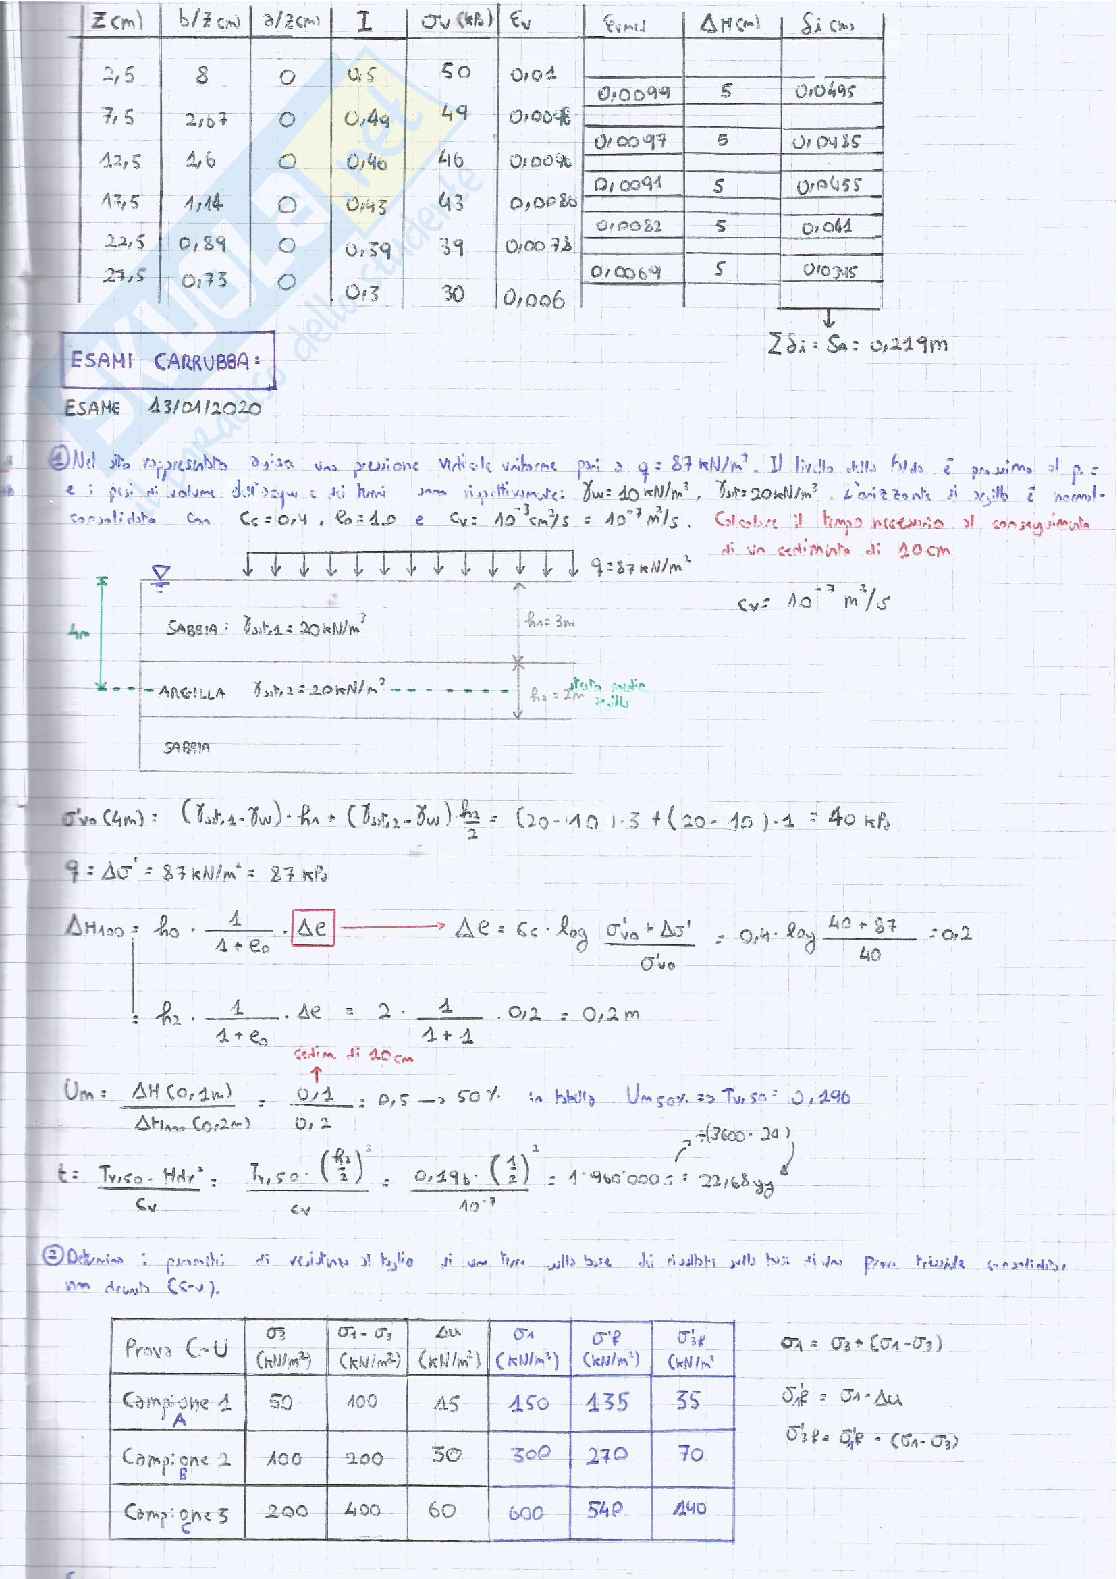 Z(cm) b/z(cm) a/z(cm) I σv(kPa) εv εvmed ΔH(cm) δi(cm)
2,5 8 0 0,5 50 0,01
0,0099 5 0,0495
7,5 2,67 0 0,49 49
0,0097 5 0,0485
12,5 1,6 0 0,46 46
0,0091 5 0,0455
17,5 1,14 0 0,43 43 0,0086
0,0082 5 0,041
22,5 0,89 0 0,39 39 0,0078
0,0069 5 0,0345
27,5 0,73 0 0,3 30 0,006
Σδi = Sa = 0,219m
ESAMI CARRUBBA:
ESAME 13/01/2020
① Nel sito rappresentato agisce una pressione verticale uniforme pari a q = 87 kN/m². Il livello della falda è prossimo al p.c
e i pesi di volume dell'acqua e dei terreni sono rispettivamente: γw = 10 kN/m³, γsat = 20 kN/m³. L'orizzonte di argilla è normal-
consolidato con Cc = 0,4, e0 = 1.0 e Cv = 10⁻³cm²/s = 10⁻⁷m²/s. Calcolare il tempo necessario al conseguimento
di un cedimento di 10cm
q = 87kN/m²
cv = 10⁻⁷ m²/s
4m
SABBIA: γsat,1 = 20kN/m³
h1 = 3m
ARGILLA γsat,2 = 20kN/m³
h2 = 2m
SABBIA
σ'v0 (4m) = (γsat,1 - γw) · h1 + (γsat,2 - γw) h2/2 = (20 - 10) · 3 + (20 - 10) · 1 = 40 kPa
q = Δσ' = 87 kN/m² = 87 kPa
ΔH100 = h0 · 1/(1 + e0) · Δe → Δe = Cc · log (σ'v0 + Δσ')/σ'v0 = 0,4 · log (40 + 87)/40 = 0,2
= h2 · 1/(1 + e0) · Δe = 2 · 1/(1 + 1) · 0,2 = 0,2 m
cedim di 10 cm
Um = ΔH (0,1m)/ΔH100 (0,2m) = 0,1/0,2 = 0,5 → 50% in tabella Um 50% => Tv,50 = 0,196
÷(3600 · 24)
t = Tv,50 · Hdr²/cv = Tv,50 · (h2/2)²/cv = 0,196 · (1/2)²/10⁻⁷ = 1'960'000 s = 22,68 gg
② Determina i parametri di resistenza al taglio di un terreno sulla base dei risultati sulla base di una prova triassiale consolidata
non drenata (C-U).
Prova C-U σ3 (kN/m²) σ1-σ3 (kN/m²) Δu (kN/m²) σ1 (kN/m²) σ'1f (kN/m²) σ'3f (kN/m²
Campione 1 A 50 100 15 150 135 35
Campione 2 B 100 200 30 300 270 70
Campione 3 C 200 400 60 600 540 140
σ1 = σ3 + (σ1-σ3)
σ'1f = σ1 - Δu
σ'3f = σ'1f - (σ1-σ3)